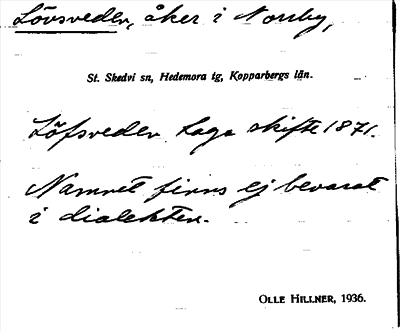 Lövsveden, åker i Norrby,
St. Skedvi sn, Hedemora tg, Kopparbergs län.
Löfsveden Laga skifte 1871.
Namnet finns ej bevarat
i dialekten.
OLLE HILLNER, 1936.